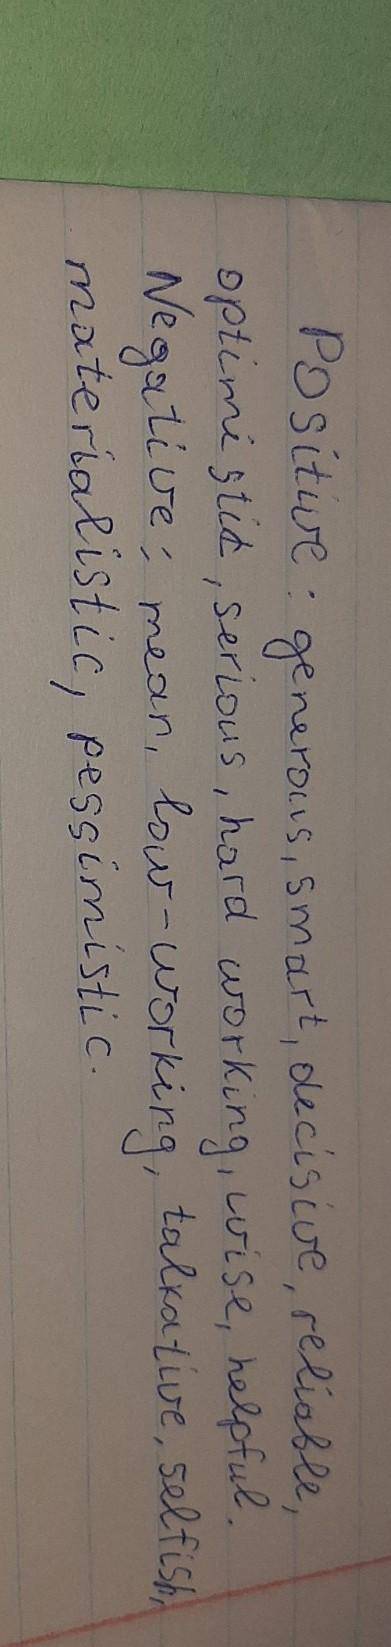 Positive: generous, smart, decisive, reliable,
optimistic, serious, hard working, wise, helpful.
Negative: mean, low-working, talkative, selfish,
materialistic, pessimistic.